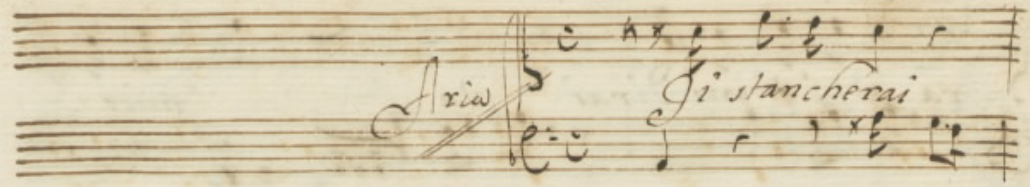 Aria
Ti stancherai